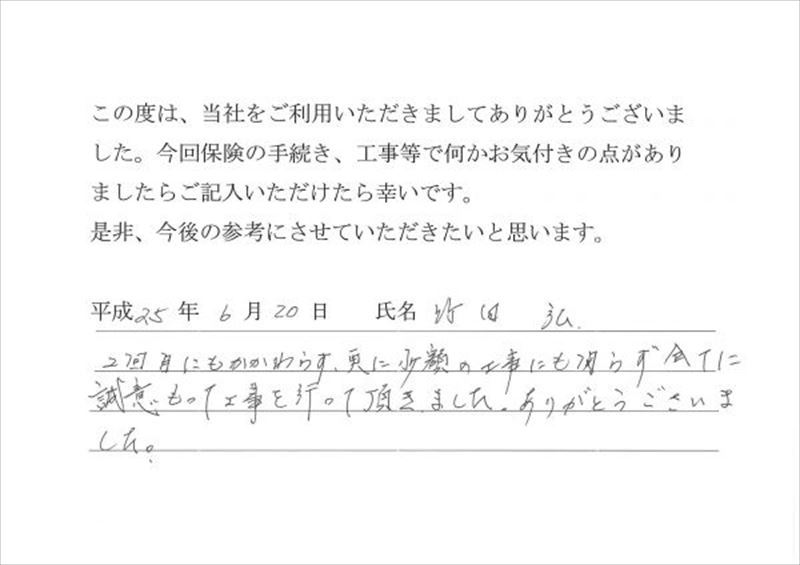 この度は、当社をご利用いただきましてありがとうございま
した。今回保険の手続き、工事等で何かお気付きの点があり
ましたらご記入いただけたら幸いです。
是非、今後の参考にさせていただきたいと思います。
平成25年 6月20日 氏名 田 弘
2回目にもかかわらず、更に少額の工事にも関らず全てに
誠意もって工事を行って頂きました。ありがとうございま
した。